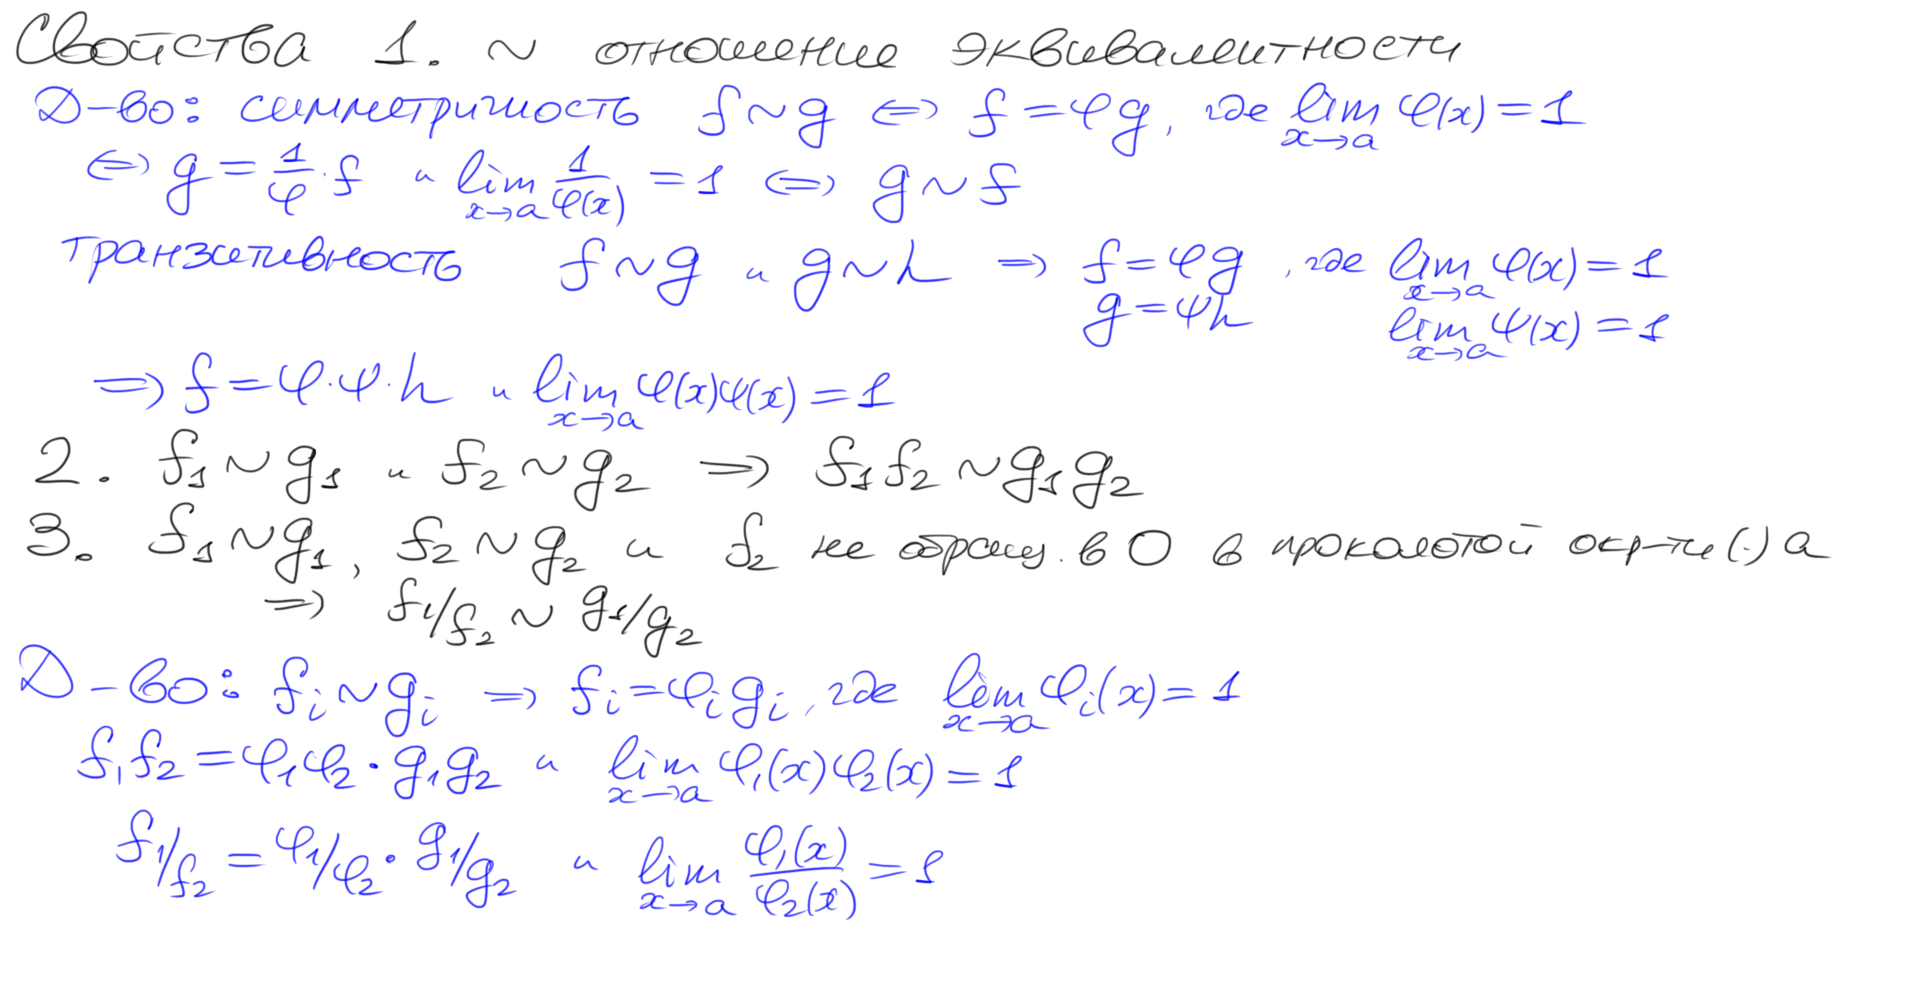 Свойства 1. ~ отношение эквивалентности
Д-во: симметричность f ~ g ⇔ f = φg, где lim x→a φ(x) = 1
⇔ g = 1/φ · f и lim x→a 1/φ(x) = 1 ⇔ g ~ f
транзитивность f ~ g и g ~ h ⇒ f = φg, где lim x→a φ(x) = 1
g = ψh lim x→a ψ(x) = 1
⇒ f = φ·ψ·h и lim x→a φ(x)ψ(x) = 1
2. f₁ ~ g₁ и f₂ ~ g₂ ⇒ f₁f₂ ~ g₁g₂
3. f₁ ~ g₁, f₂ ~ g₂ и f₂ не обращ. в 0 в проколотой окр-ти (·) a
⇒ f₁/f₂ ~ g₁/g₂
Д-во: fᵢ ~ gᵢ ⇒ fᵢ = φᵢgᵢ, где lim x→a φᵢ(x) = 1
f₁f₂ = φ₁φ₂ · g₁g₂ и lim x→a φ₁(x)φ₂(x) = 1
f₁/f₂ = φ₁/φ₂ · g₁/g₂ и lim x→a φ₁(x)/φ₂(x) = 1